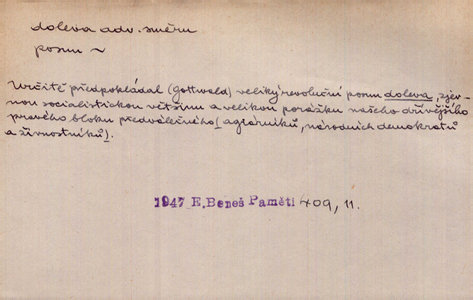 doleva adv. směru
posun ~
Určitě předpokládal (Gottwald) veliký revoluční posun doleva, zjev-
nou socialistickou většinu a velikou porážku našeho dřívějšího
pravého bloku předválečného (agrárníků, národních demokratů
a živnostníků).
1947 E. Beneš Paměti 409, 11.